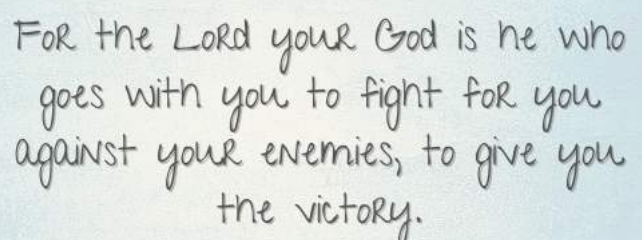 For the Lord your God is he who
goes with you to fight for you
against your enemies, to give you
the victory.